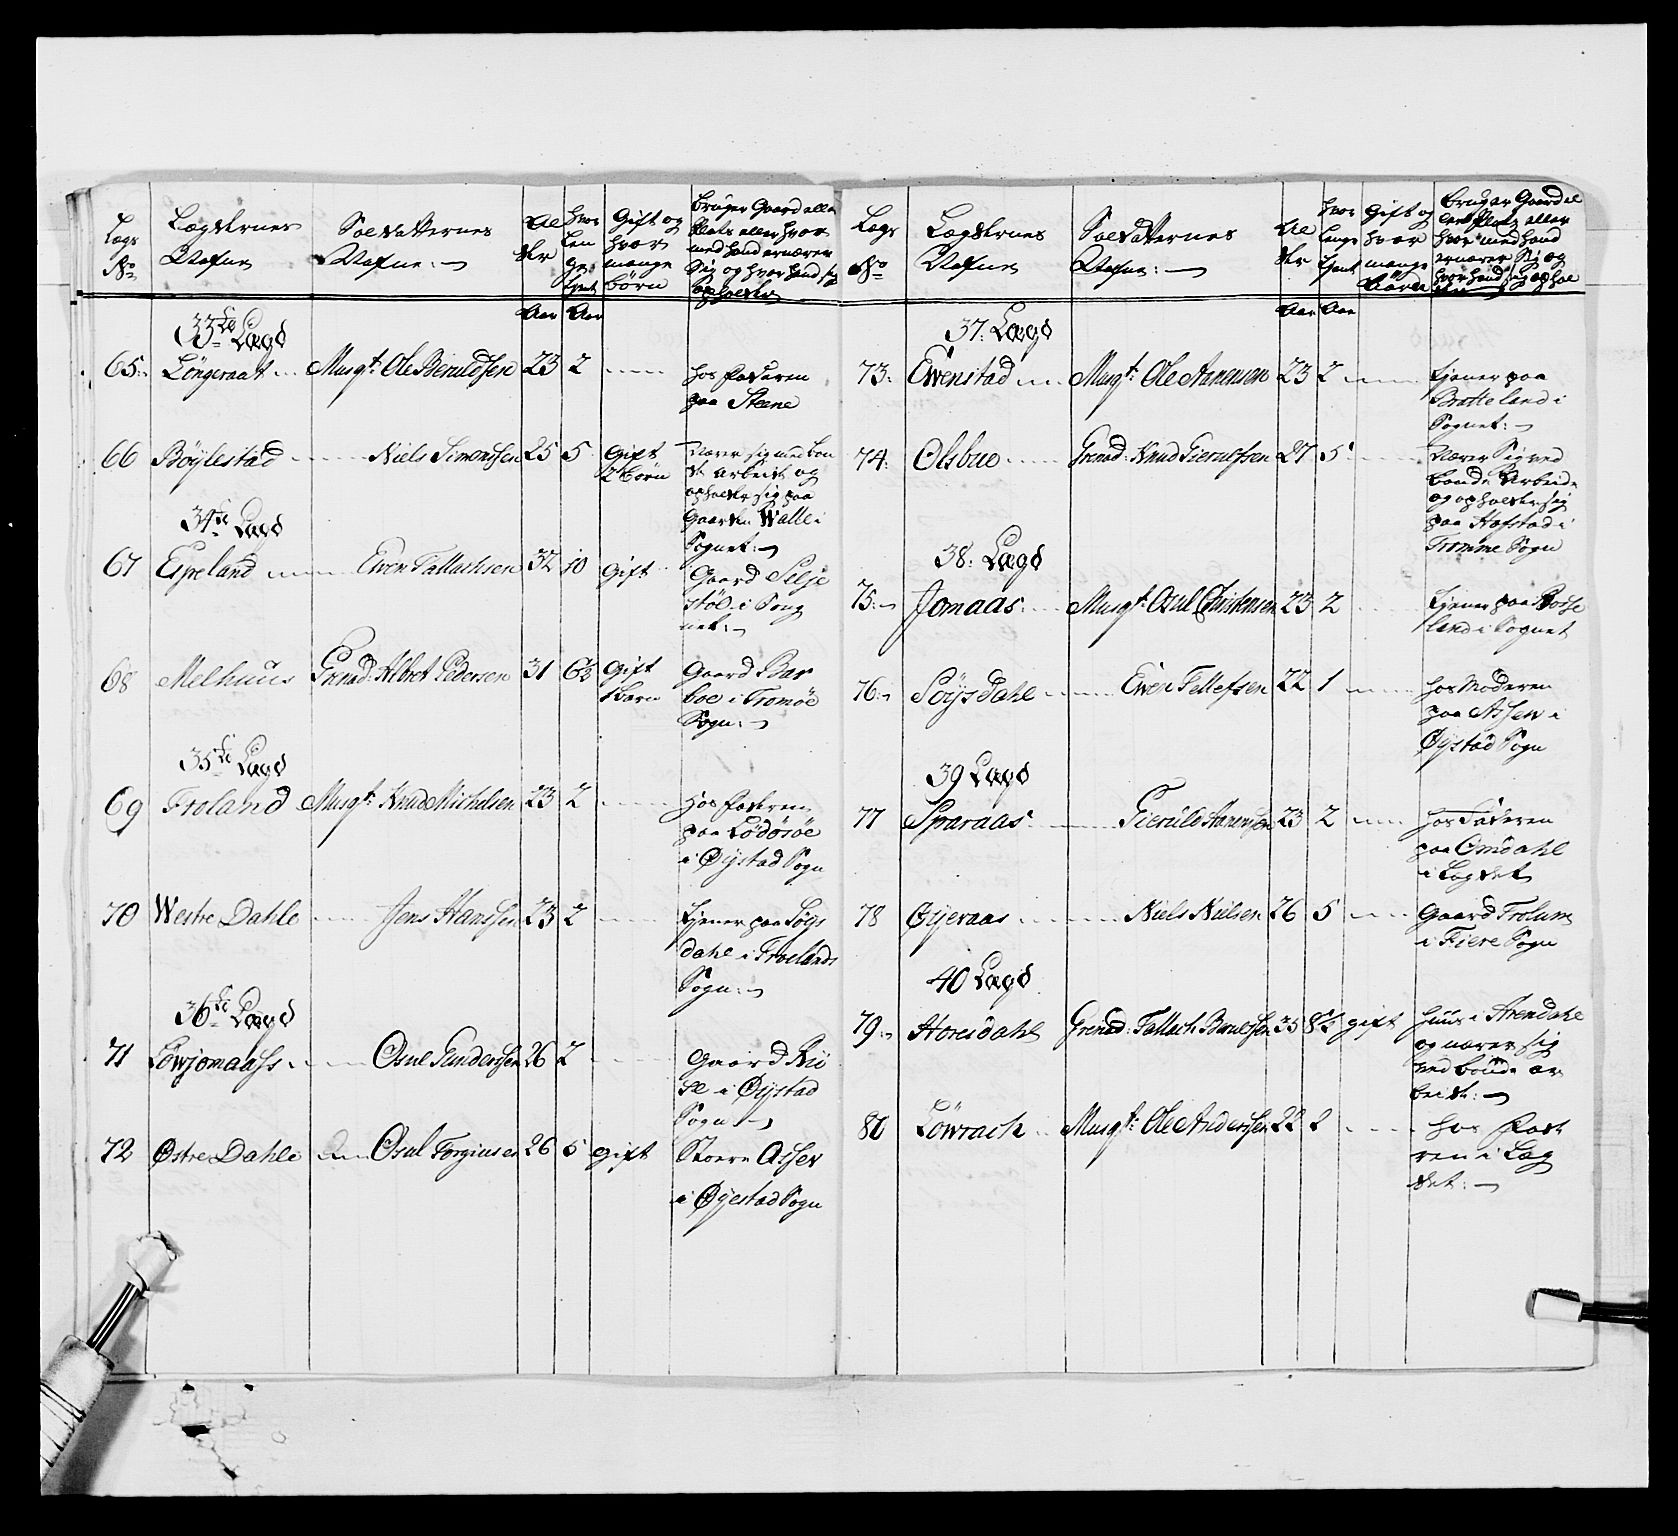 Lægs No | Lægdernes Nafne | Soldatternes Nafne: | Alder | Hvor Længe tient | Gift og hvor mange börn | bruger Gaard eller Plads eller hvor med hand ernærer Sig og hvor hand sig opholder
Aar | Aar
33te Lægd
65 | Löngeraat | Musqt: Ole Beruldsen | 23 | 2 | hos faderen paa Steene
66 | Böylestad | Niels Simonsen | 25 | 5 | Gift 2 börn | Nærer sig med bonde arbeide og opholder sig paa Gaarden Walle i Sognet:
34te Lægd
67 | Espeland | Even Tallachsen | 32 | 10 | Gift | Gaard Selje stöl i Sognet:
68 | Melhuus | Grenad: Albret Pedersen | 31 | 6½ | Gift 1 barn | Gaard Barboe i Tromöe Sogn:
35te Lægd
69 | Froland | Musqt: Knud Michelsen | 23 | 2 | hos faderen paa Lödösöe i Öjestad Sogn
70 | Westre Dahle | Jens Hansen | 23 | 2 | tjener paa Lögsdahl i Froelands Sogn:
36te Lægd
71 | Löwjomaass | Osul Gundersen | 26 | 2 | Gaard Rise i Öjestad Sogn
72 | Östre Dahle | Osul Torgiusen | 26 | 5 | gift | Stoere Asser i Öjestad Sogn
Lægs No | Lægdernes Nafne | Soldatternes Nafne: | Alder | hvor Længe tjent | Gift og hvor mange Börn | bruger Gaard eller Plads eller hvor med hand ernærer Sig og hvor hand sig opholder
Aar | Aar
37: Lægd
73: | Ewenstad | Musqt: Ole Aanensen | 23 | 2 | tjener paa Bratteland i Sognet:
74: | Olsbuo | Grenad: Knud Gierulfsen | 27 | 5 | Nærer Sig ved bonde Arbeide og opholder sig paa Hafstad i Tromme Sogn
38: Lægd
75: | Jomaas | Musqt: Osul Christensen | 23 | 2 | tjener paa Rosseland i Sognet
76: | Söysdahl | Even Tellefsen | 22 | 1 | hos Moderen paa Asser i Öjestad Sogn
39 Lægd
77 | Sparaas | Gieruld Aanensen | 23 | 2 | hos Faderen paa Omdahl i Lægdet
78 | Öyeraas | Niels Nielsen | 26 | 5 | Gaard Frolunes i Fiere Sogn
40 Lægd
79: | Horesdahl | Grenad: Tallach Berulsen | 35 | 8½ | gift | huus i Arendahl og nærer sig ved bonde arbeide:
80 | Löwrach | Musqt: Ole Andersen | 22 | 2 | hos faderen i Lægdet: